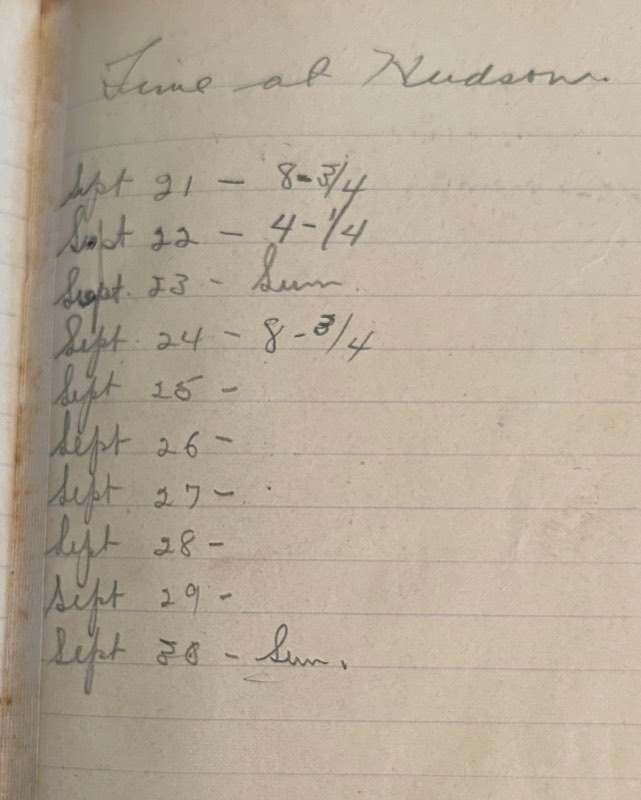 Time at Hudson.
Sept 21 - 8-3/4
Sept 22 - 4-1/4
Sept. 23 - Sun.
Sept. 24 - 8-3/4
Sept 25 -
Sept 26 -
Sept 27 -
Sept 28 -
Sept 29 -
Sept 30 - Sun.